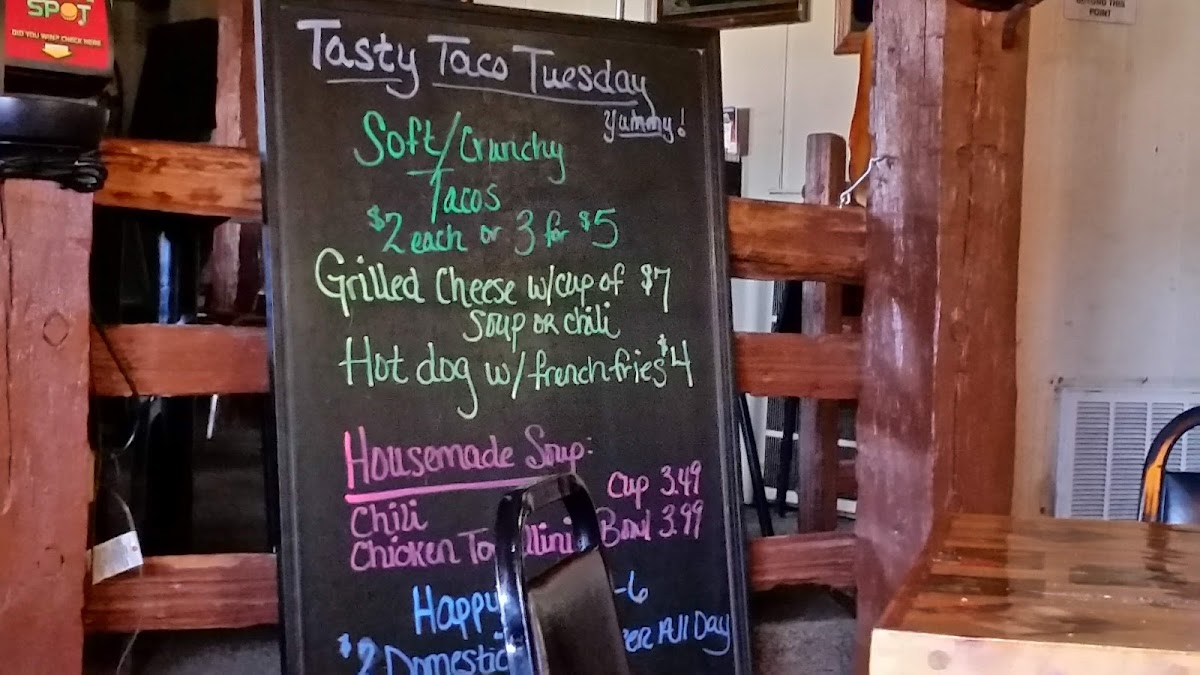 SPOT
DID YOU WIN? CHECK HERE
Tasty Taco Tuesday
Yummy!
Soft/Crunchy
Tacos
$2 each or 3 for $5
Grilled Cheese w/cup of $7
Soup or chili
Hot dog w/ french fries $4
Housemade Soup:
Cup 3.49
Chili
Chicken To llini Bowl 3.99
Happy -6
$2 Domestic All Day
BEYOND THIS
POINT